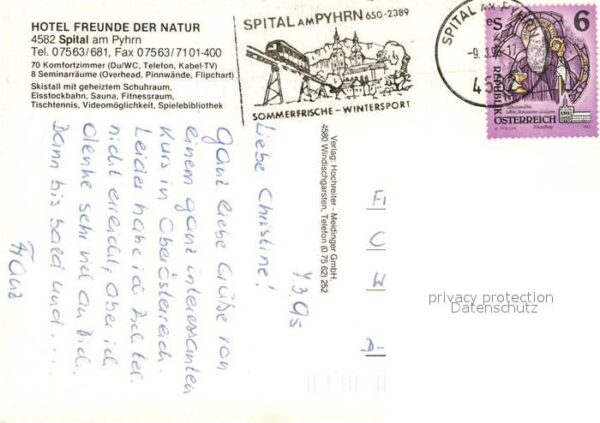 HOTEL FREUNDE DER NATUR
4582 Spital am Pyhrn
Tel. 07563/681, Fax 07563/7101-400
70 Komfortzimmer (Du/WC, Telefon, Kabel-TV)
8 Seminarräume (Overhead, Pinnwände, Flipchart)
Skistall mit geheiztem Schuhraum,
Eisstockbahn, Sauna, Fitnessraum,
Tischtennis, Videomöglichkeit, Spielebibliothek
SPITAL AM PYHRN 650-2389
SOMMERFRISCHE - WINTERSPORT
SPITAL AM PYHRN
6
REPUBLIK
ÖSTERREICH
Verlag: Hochreiter - Meidinger GmbH.
4580 Windischgarsten, Telefon (0 75 62) 252
Liebe Christine!
Ganz liebe Grüße von
einem ganz interessanten
Kurs in Oberösterreich.
Leider habe ich Dich tel.
nicht erreicht, aber ich
denke sehr viel an Dich.
Dann bis bald und ...
Franz
F
C
W
D-
privacy protection
Datenschutz